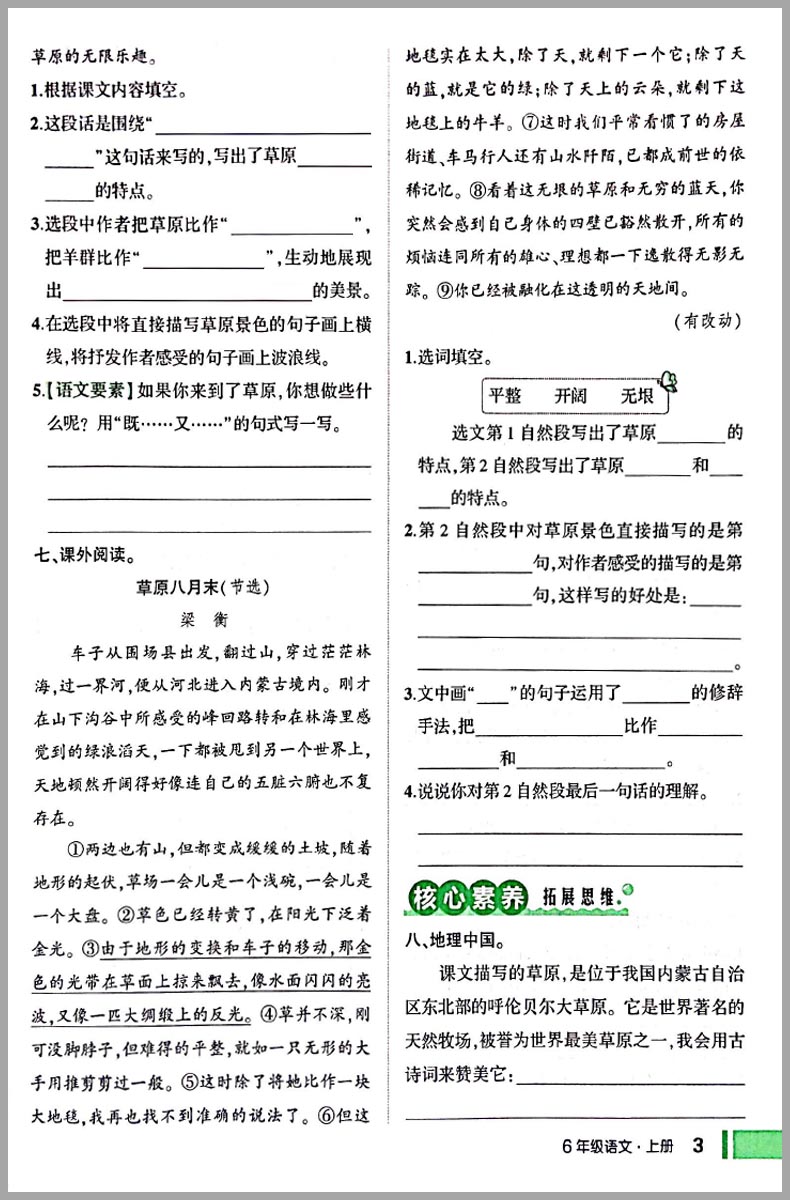 草原的无限乐趣。
1.根据课文内容填空。
2.这段话是围绕“
”这句话来写的,写出了草原
的特点。
3.选段中作者把草原比作“ ”,
把羊群比作“ ”,生动地展现
出 的美景。
4.在选段中将直接描写草原景色的句子画上横
线,将抒发作者感受的句子画上波浪线。
5.【语文要素】如果你来到了草原,你想做些什
么呢? 用“既……又……”的句式写一写。
七、课外阅读。
草原八月末(节选)
梁 衡
车子从围场县出发,翻过山,穿过茫茫林
海,过一界河,便从河北进入内蒙古境内。刚才
在山下沟谷中所感受的峰回路转和在林海里感
觉到的绿浪滔天,一下都被甩到另一个世界上,
天地顿然开阔得好像连自己的五脏六腑也不复
存在。
①两边也有山,但都变成缓缓的土坡,随着
地形的起伏,草场一会儿是一个浅碗,一会儿是
一个大盘。②草色已经转黄了,在阳光下泛着
金光。③由于地形的变换和车子的移动,那金
色的光带在草面上掠来飘去,像水面闪闪的亮
波,又像一匹大绸缎上的反光。④草并不深,刚
可没脚脖子,但难得的平整,就如一只无形的大
手用推剪剪过一般。⑤这时除了将她比作一块
大地毯,我再也找不到准确的说法了。⑥但这
地毯实在太大,除了天,就剩下一个它;除了天
的蓝,就是它的绿;除了天上的云朵,就剩下这
地毯上的牛羊。⑦这时我们平常看惯了的房屋
街道、车马行人还有山水阡陌,已都成前世的依
稀记忆。⑧看着这无垠的草原和无穷的蓝天,你
突然会感到自己身体的四壁已豁然散开,所有的
烦恼连同所有的雄心、理想都一下逸散得无影无
踪。⑨你已经被融化在这透明的天地间。
(有改动)
1.选词填空。
平整 开阔 无垠
选文第1自然段写出了草原 的
特点,第2自然段写出了草原 和
的特点。
2.第2自然段中对草原景色直接描写的是第
句,对作者感受的描写的是第
句,这样写的好处是:
。
3.文中画“ ”的句子运用了 的修辞
手法,把 比作
和 。
4.说说你对第2自然段最后一句话的理解。
核心素养 拓展思维
八、地理中国。
课文描写的草原,是位于我国内蒙古自治
区东北部的呼伦贝尔大草原。它是世界著名的
天然牧场,被誉为世界最美草原之一,我会用古
诗词来赞美它:
6年级语文·上册 3